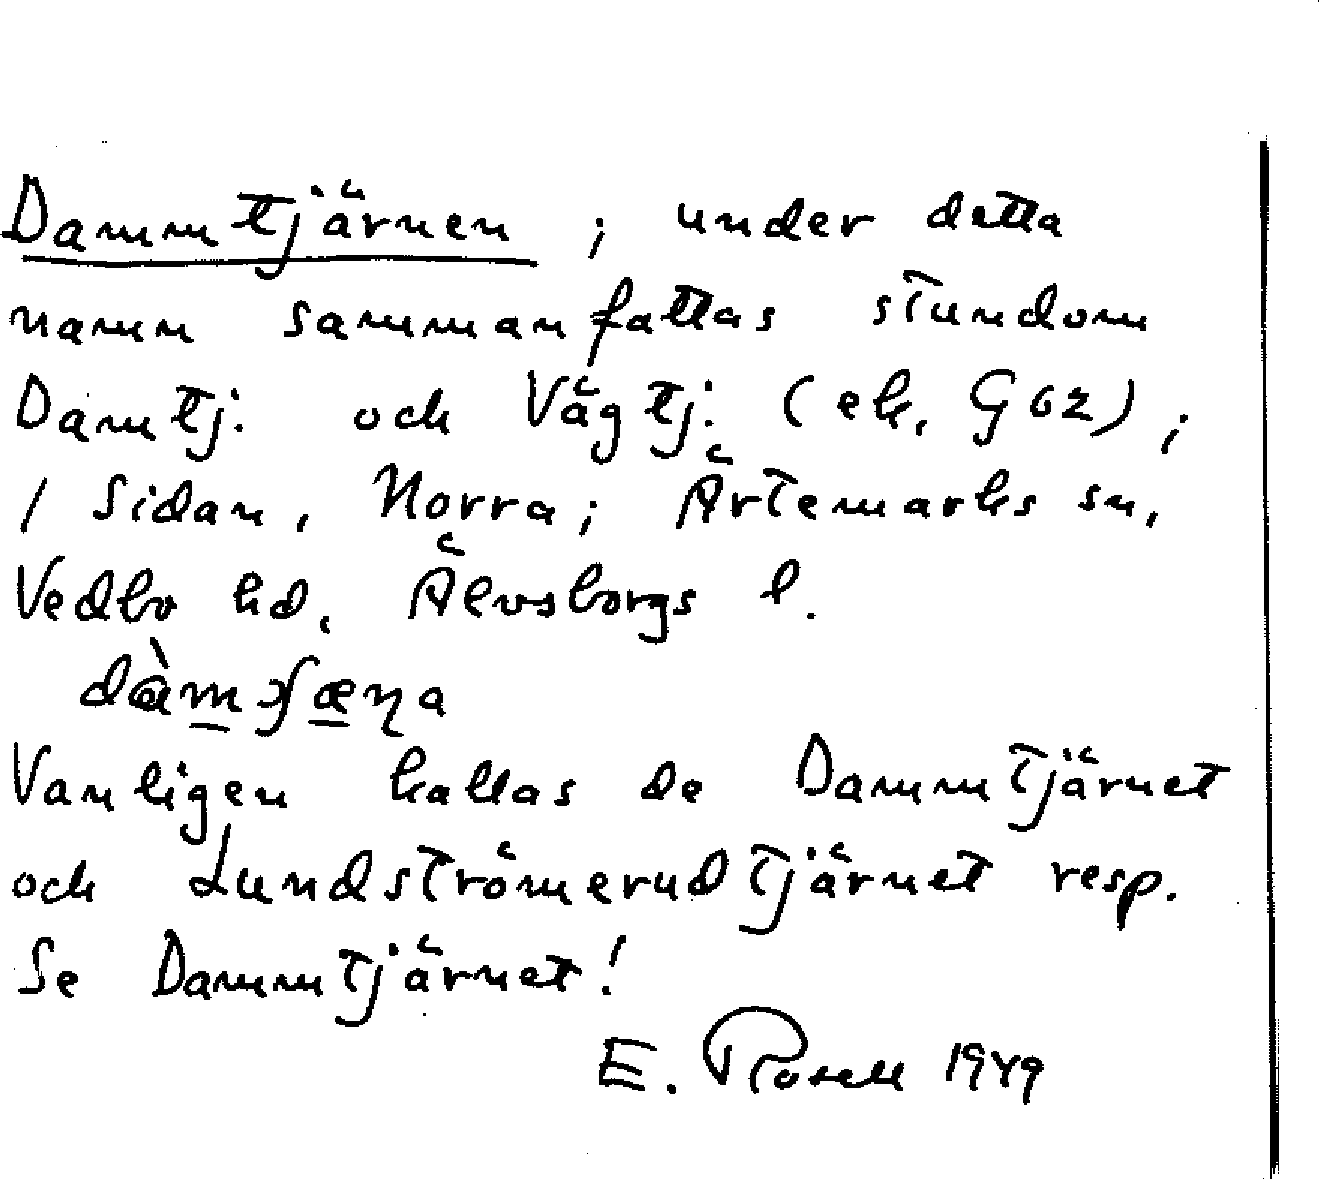 Dammtjärnen ; under detta
namn sammanfattas stundom
Damtj. och Vägtj. (ek. G 62) ;
/ Sidan, Norra; Ärtemarks sn,
Vedbo hd, Älvsborgs l.
Vanligen kallas de Dammtjärnet
och Lundströmerudtjärnet resp.
Se Dammtjärnet!
E. Rosell 1949